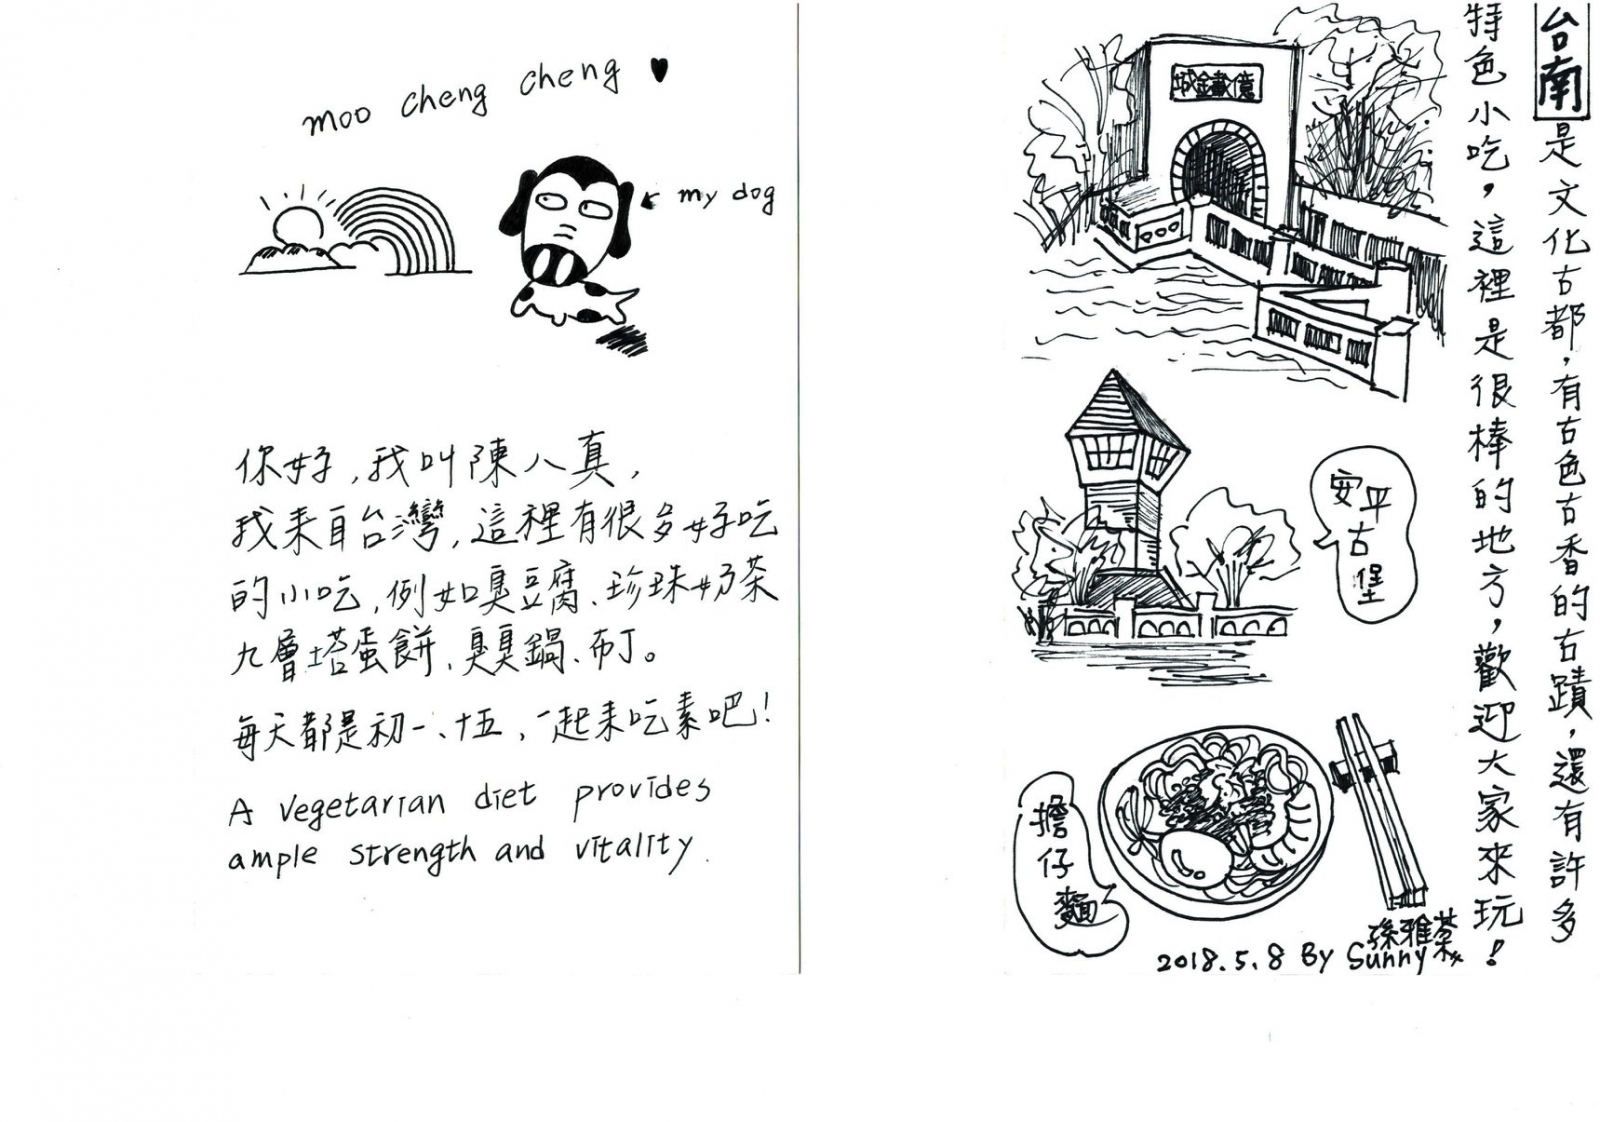 moo cheng cheng ♥
my dog
你好,我叫陳八真,
我来自台灣,這裡有很多好吃
的小吃,例如臭豆腐、珍珠奶茶
九層塔蛋餅、臭臭鍋、布丁。
每天都是初一、十五,一起来吃素吧!
A vegetarian diet provides
ample strength and vitality.
台南是文化古都,有古色古香的古蹟,還有許多
特色小吃,這裡是很棒的地方,歡迎大家來玩!
城金載億
安平古堡
擔仔麵
孫雅棻
2018.5.8 By Sunny